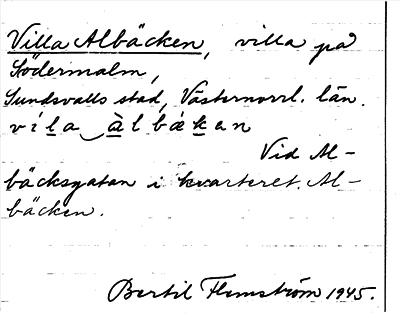 Villa Albäcken, villa på
Södermalm,
Sundsvalls stad, Västernorrl. län.
vi´la àlbäkan
Vid Al-
bäcksgatan i kvarteret Al-
bäcken.
Bertil Flemström 1945.